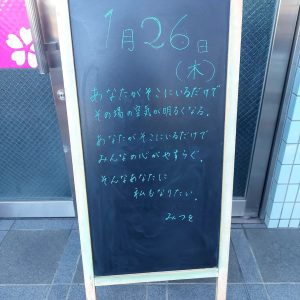 1月26日
(木)
あなたがそこにいるだけで
その場の空気が明るくなる。
あなたがそこにいるだけで
みんなの心がやすらぐ。
そんなあなたに
私もなりたい。
みつを